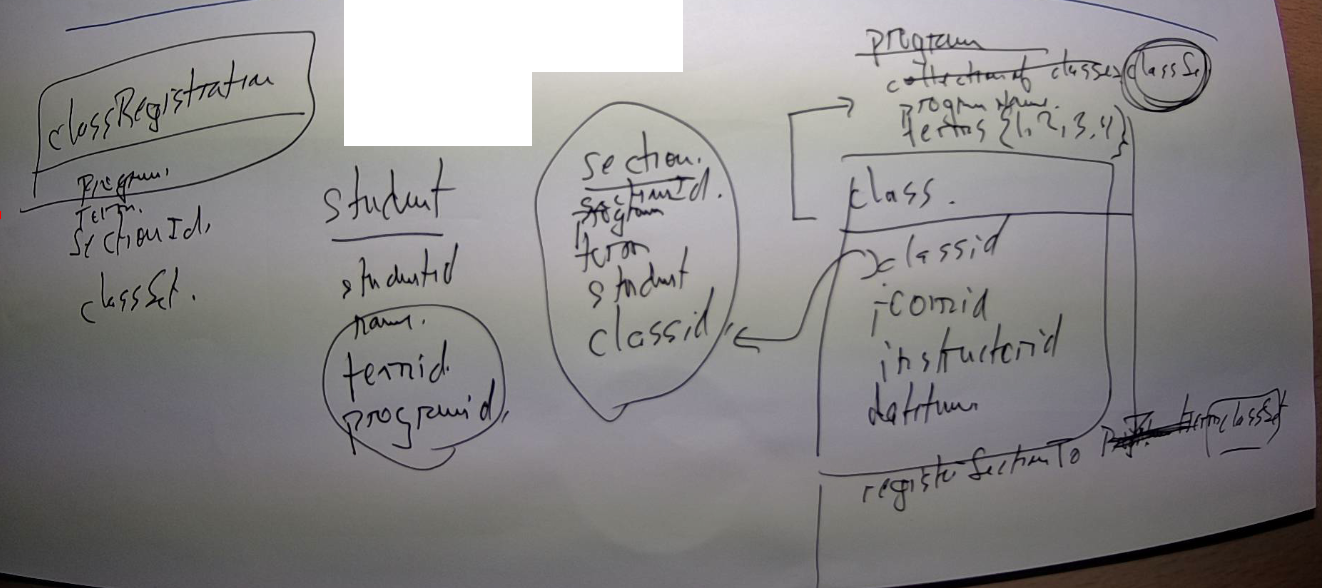 classRegistration
program.
term.
SectionId.
classSet.
student
studentid
name.
termid.
programid.
section.
sectionId.
program
term
student
classid
program
collection of classes classSet
program name.
terms {1, 2, 3, 4}
class.
classid
roomid
instructorid
datetime
registerSectionTo term classSet